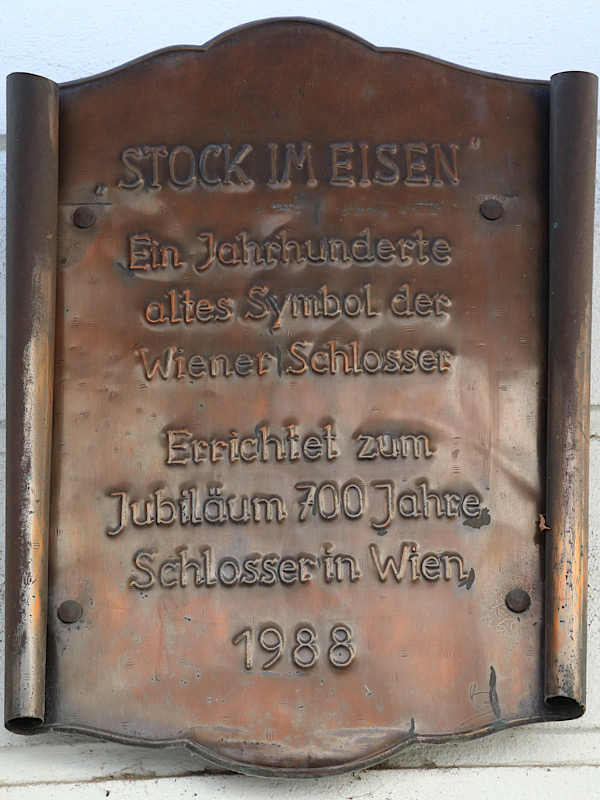 „STOCK IM EISEN“
Ein Jahrhunderte
altes Symbol der
Wiener Schlosser
Errichtet zum
Jubiläum 700 Jahre
Schlosser in Wien
1988